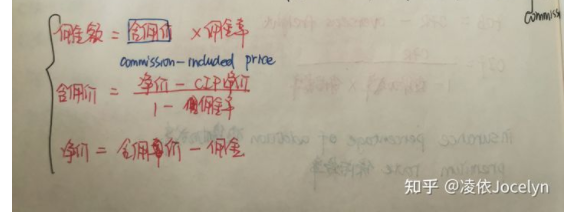 commissio
佣金额 = 含佣价 × 佣金率
commission-included price
含佣价 = 净价 - CIF净价 / 1 - 佣金率
净价 = 含佣价 - 佣金
insurance percentage of addition
premium rate
知乎 @凌依Jocelyn